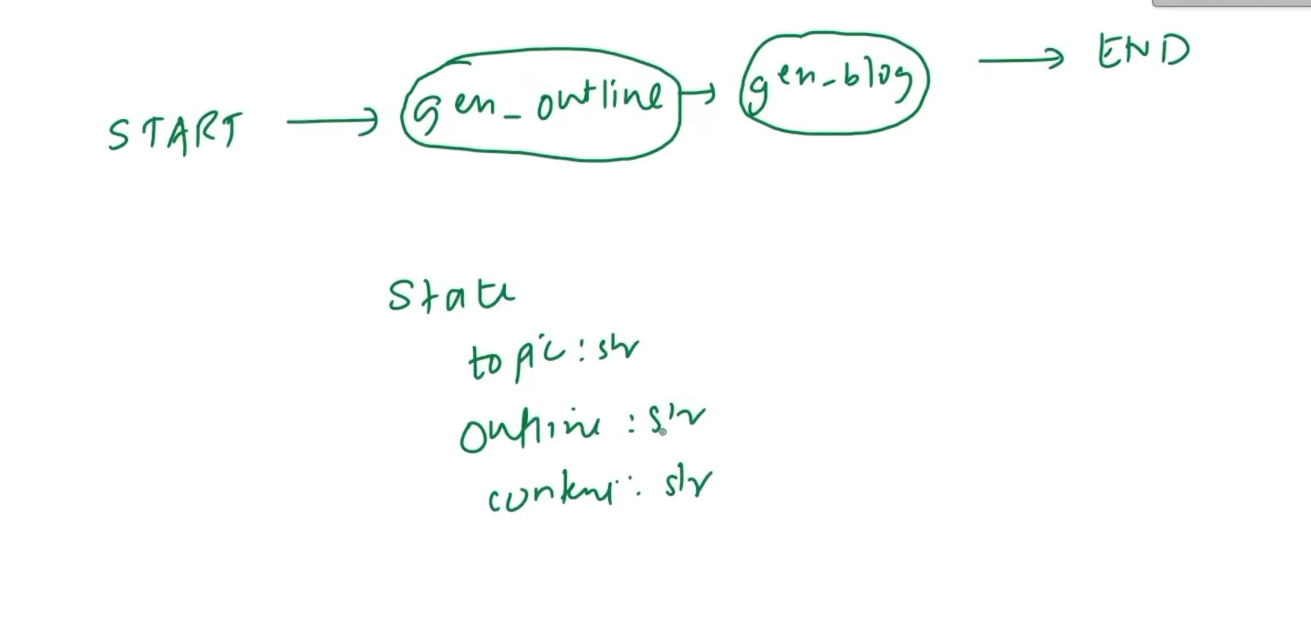 START → gen_outline → gen_blog → END
State
topic : str
outline : str
content : str